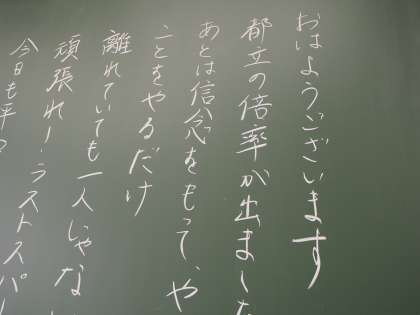 おはようございます
都立の倍率が出まし
あとは信念をもって、や
ことをやるだけ
離れていても一人じゃな
頑張れ!ラストスパー
今日も平